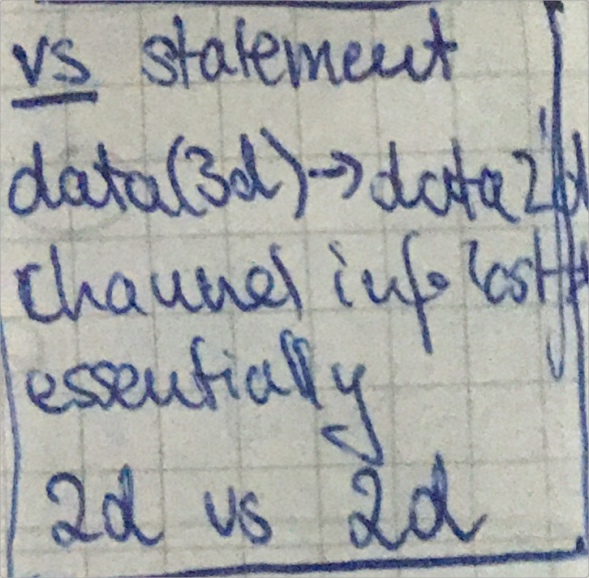 vs statement
data(3d)→data2d
channel info lost
essentially
2d vs 2d